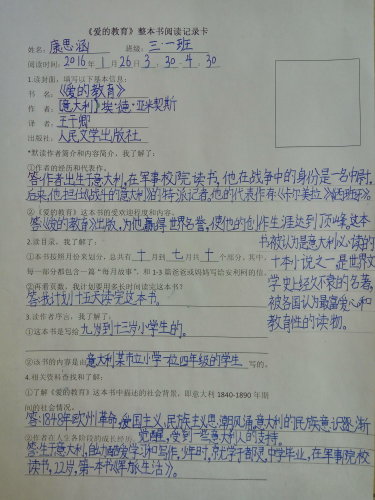 《爱的教育》整本书阅读记录卡
姓名：康思涵 班级：三·一班
阅读时间：2016年1月26日 3:30-4:30
1.读封面，填写以下基本信息：
书 名：《爱的教育》
作 者：[意大利]埃·德·亚米契斯
译 者：王干卿
出版社：人民文学出版社
*默读作者简介和内容简介，我了解了：
①作者的经历和代表作。
答：作者出生于意大利，在军事校院读书，他在战争中的身份是一名中尉。
后来，他担任战斗的意大利的特派记者，他的代表作有《卡尔美拉》《西班牙》。
②《爱的教育》这本书的受欢迎程度和内容。
答：《爱的教育》出版，为他赢得世界名誉，使他的创作生涯达到顶峰。这本
书被认为是意大利必读的
十本小说之一，是世界文
学史上经久不衰的名著，
被各国认为最富爱心和
教育性的读物。
2.读目录，我了解了：
①本书按照月份来划分，总共有十月到七月共十个部分，其中，
每一部分都包含一篇“每月故事”，和1-3篇爸爸或妈妈写给安利柯的信。
②再看页数，我计划要用多长时间读完这本书？
答：我计划十五天读完这本书。
3.读作者序言，我了解了：
①这本书是写给九岁到十三岁小学生的。
②该书的内容是由意大利某市立小学一位四年级的学生写的。
4.相关资料查找和了解：
①了解《爱的教育》这本书中描述的社会背景，即意大利1840-1890年期
间的社会情况。
答：1848年欧州革命，爱国主义，民族主义思潮风涌，意大利的民族意识逐渐
觉醒，受到一些意大利人的支持。
②作者在人生各阶段的成长经历。
答：生于意大利，自幼酷爱学习和写作，少年时，就学于都灵中学毕业，在军事院校
读书，22岁，第一本书《军旅生活》。